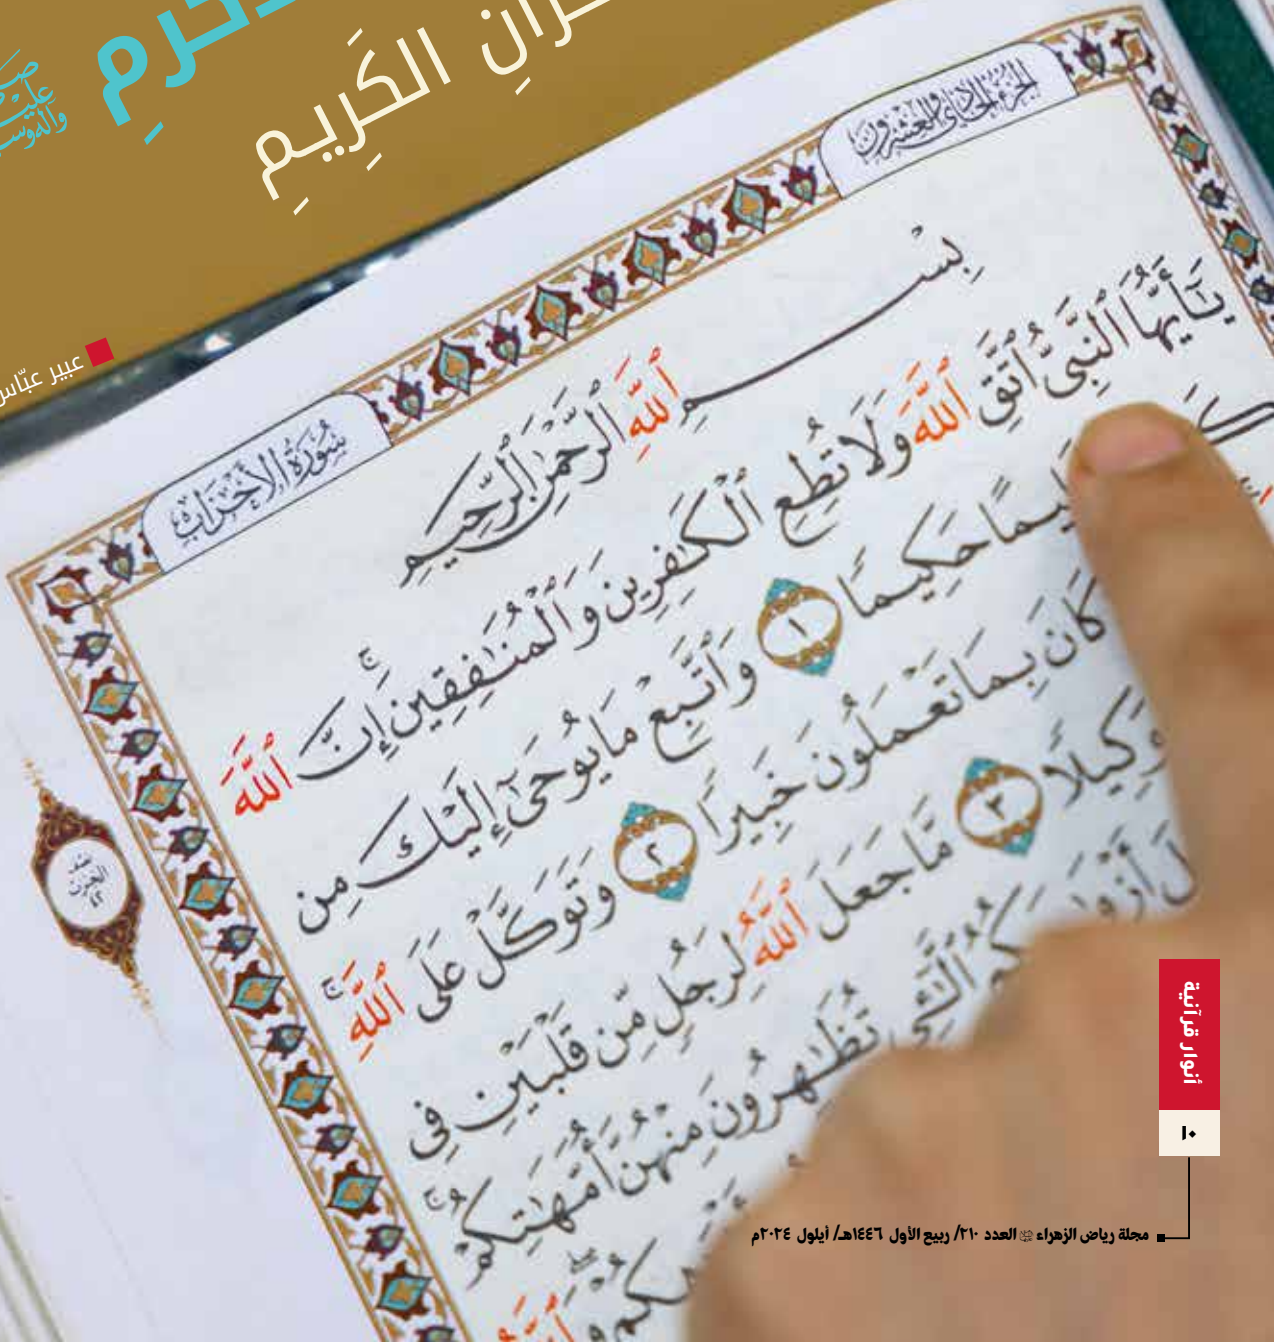 الكَرِيمِ
صلى الله
عليه
وآله وسلم
عبير عبّاس
الجزء الحادي والعشرون
سُورَةُ الْأَحْزَابِ
بِسْمِ ٱللَّهِ ٱلرَّحْمَٰنِ ٱلرَّحِيمِ
يَٰٓأَيُّهَا ٱلنَّبِىُّ ٱتَّقِ ٱللَّهَ وَلَا تُطِعِ ٱلْكَٰفِرِينَ وَٱلْمُنَٰفِقِينَ ۚ إِنَّ ٱللَّهَ
حَكِيمًا ١ وَٱتَّبِعْ مَا يُوحَىٰٓ إِلَيْكَ مِن
كَانَ بِمَا تَعْمَلُونَ خَبِيرًا ٢ وَتَوَكَّلْ عَلَى ٱللَّهِ ۚ
وَكِيلًا ٣ مَّا جَعَلَ ٱللَّهُ لِرَجُلٍ مِّن قَلْبَيْنِ فِى
ٱلَّٰٓـِٔى تُظَٰهِرُونَ مِنْهُنَّ أُمَّهَٰتِكُمْ ۚ
نصف
الحزب
٤٢
أنوار قرآنية
١٠
مجلة رياض الزهراء العدد ٢١٠/ ربيع الأول ١٤٤٦هـ/ أيلول ٢٠٢٤م